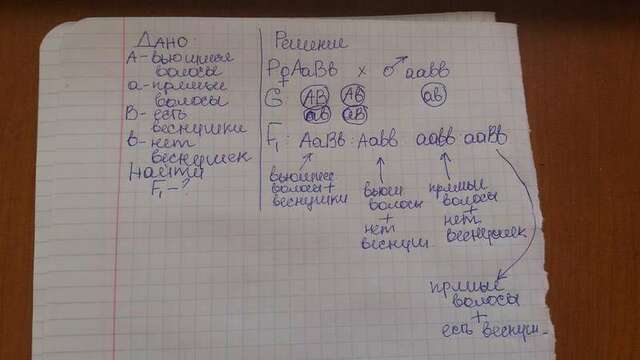 Дано:
А- вьющиеся
волосы
а- прямые
волосы
В- есть
веснушки
в- нет
веснушек
Найти
F₁ - ?
Решение
Р ♀ АаВв х ♂ аавв
G АВ Ав ав
ав аВ
F₁: АаВв: Аавв аавв ааВв
вьющиес
волосы +
веснушки
вьющ
волосы
+
нет
веснуш.
прямые
волосы
+
нет
веснушек
прямые
волосы
+
есть веснуш-